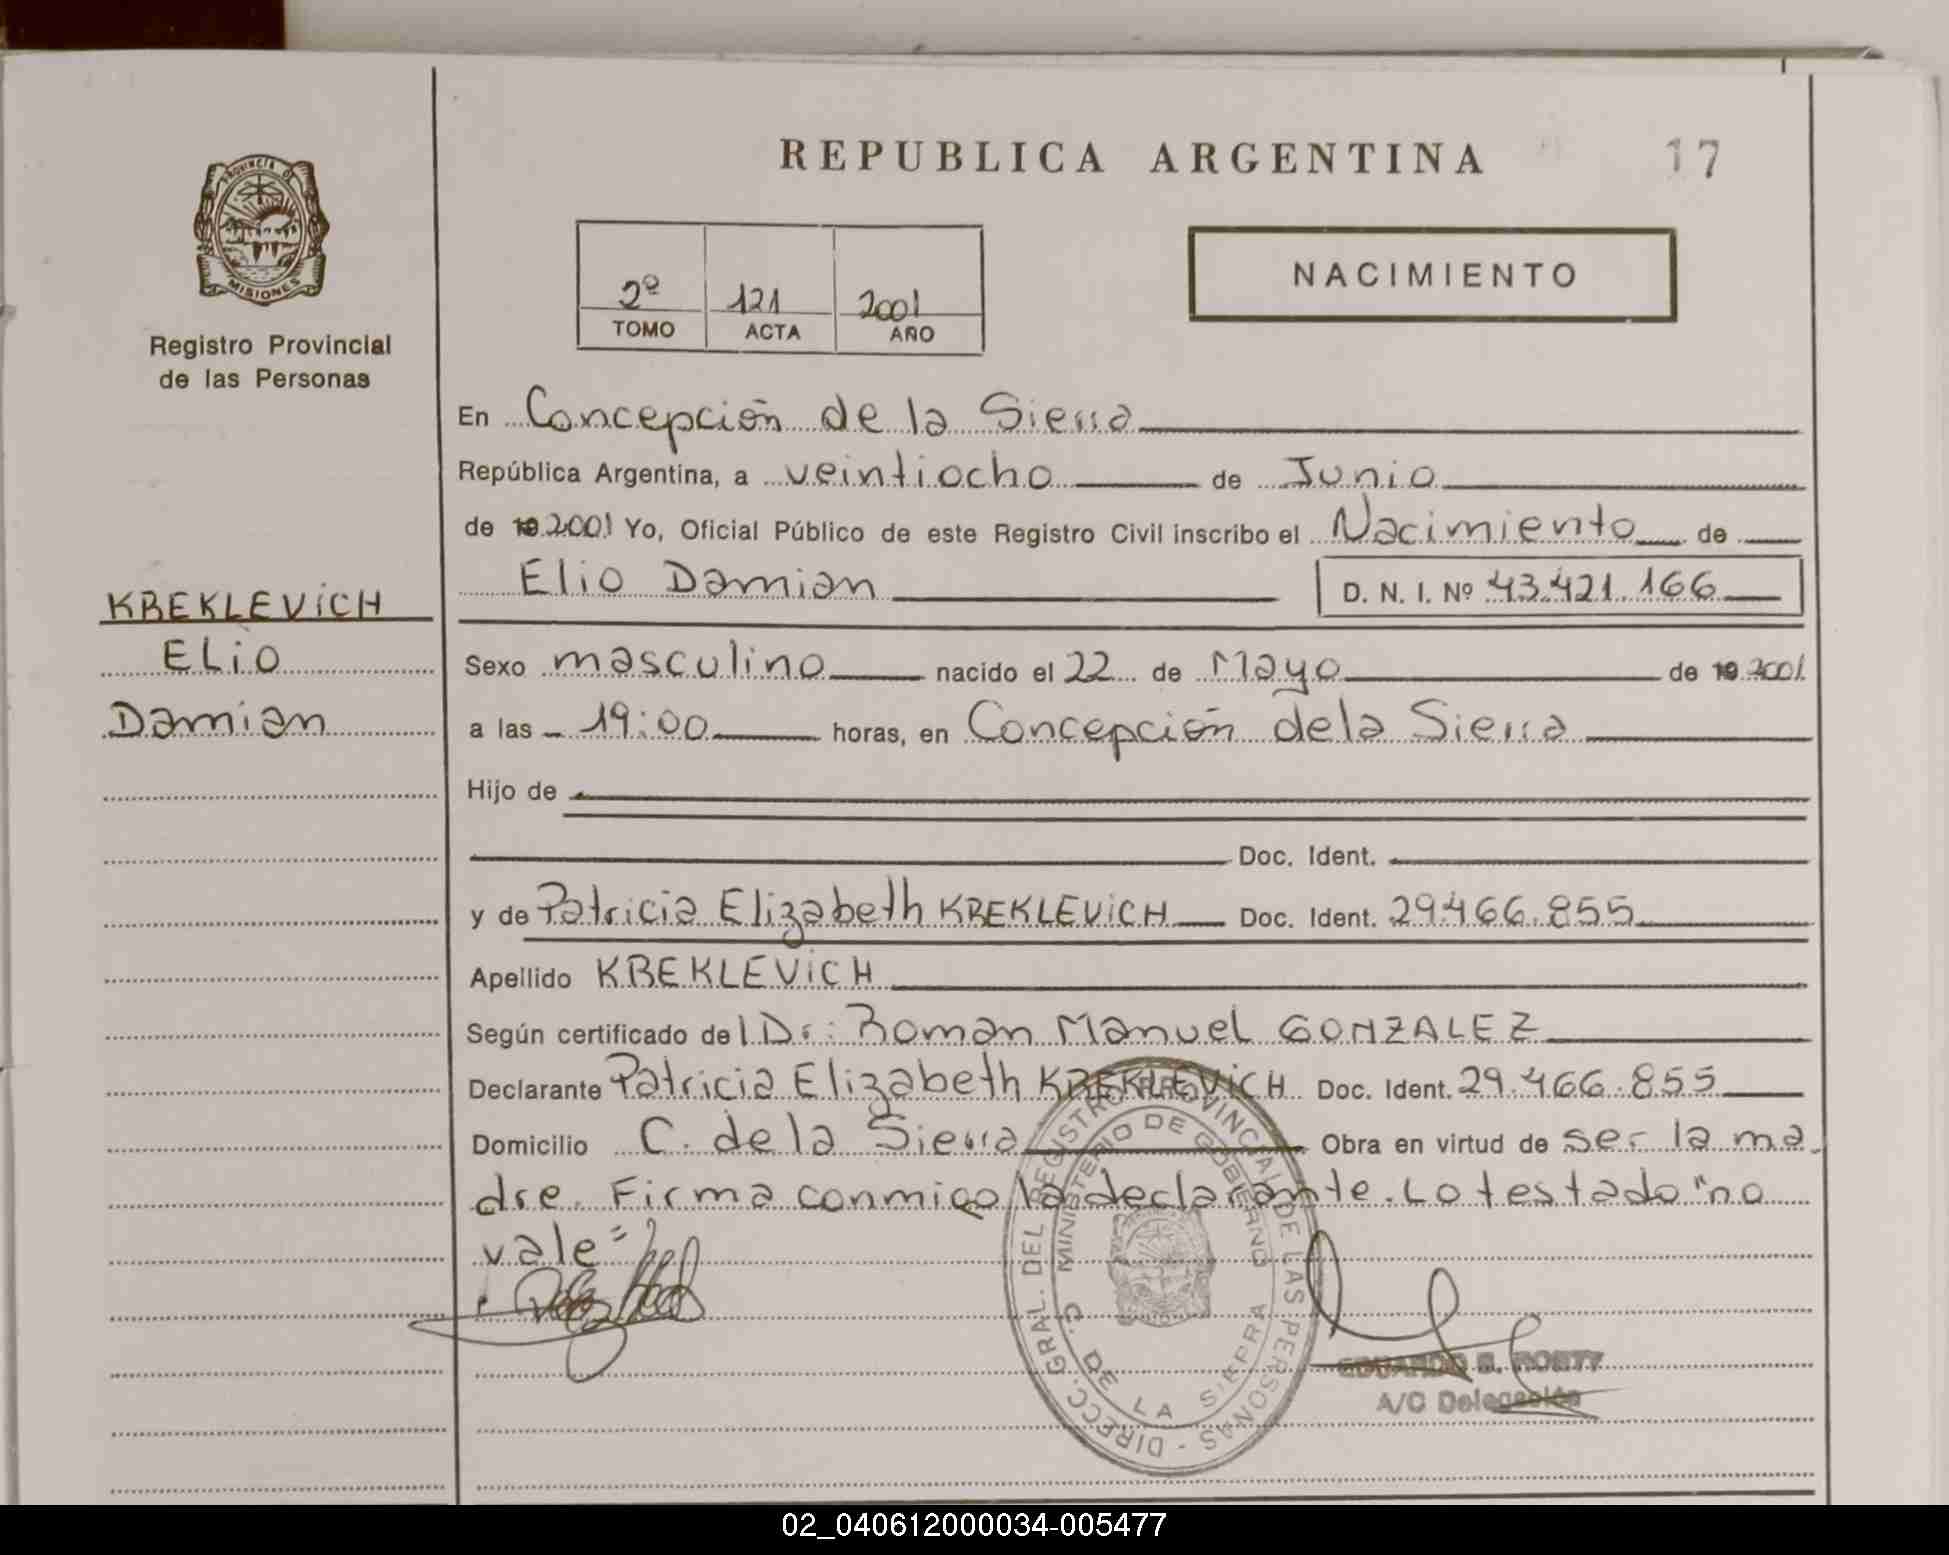 REPUBLICA ARGENTINA 17
PROVINCIA DE MISIONES
Registro Provincial
de las Personas
2º 121 2001
TOMO ACTA AÑO
NACIMIENTO
En Concepción de la Sierra
República Argentina, a veintiocho de Junio
de 19 2001 Yo, Oficial Público de este Registro Civil inscribo el Nacimiento de
Elio Damian D. N. I. Nº 43.421.166
KREKLEVICH
ELIO
Damian
Sexo masculino nacido el 22 de Mayo de 19 2001
a las 19:00 horas, en Concepción de la Sierra
Hijo de
Doc. Ident.
y de Patricia Elizabeth KREKLEVICH Doc. Ident. 29.466.855
Apellido KREKLEVICH
Según certificado del Dr: Roman Manuel GONZALEZ
Declarante Patricia Elizabeth KREKLEVICH Doc. Ident. 29.466.855
Domicilio C. de la Sierra Obra en virtud de ser la ma
dre. Firma conmigo la declarante. Lo testado "no
vale"
DIRECC. GRAL. DEL REGISTRO PROVINCIAL DE LAS PERSONAS
MINISTERIO DE GOBIERNO
C. DE LA SIERRA
EDUARDO
A/C Delegación
02_040612000034-005477